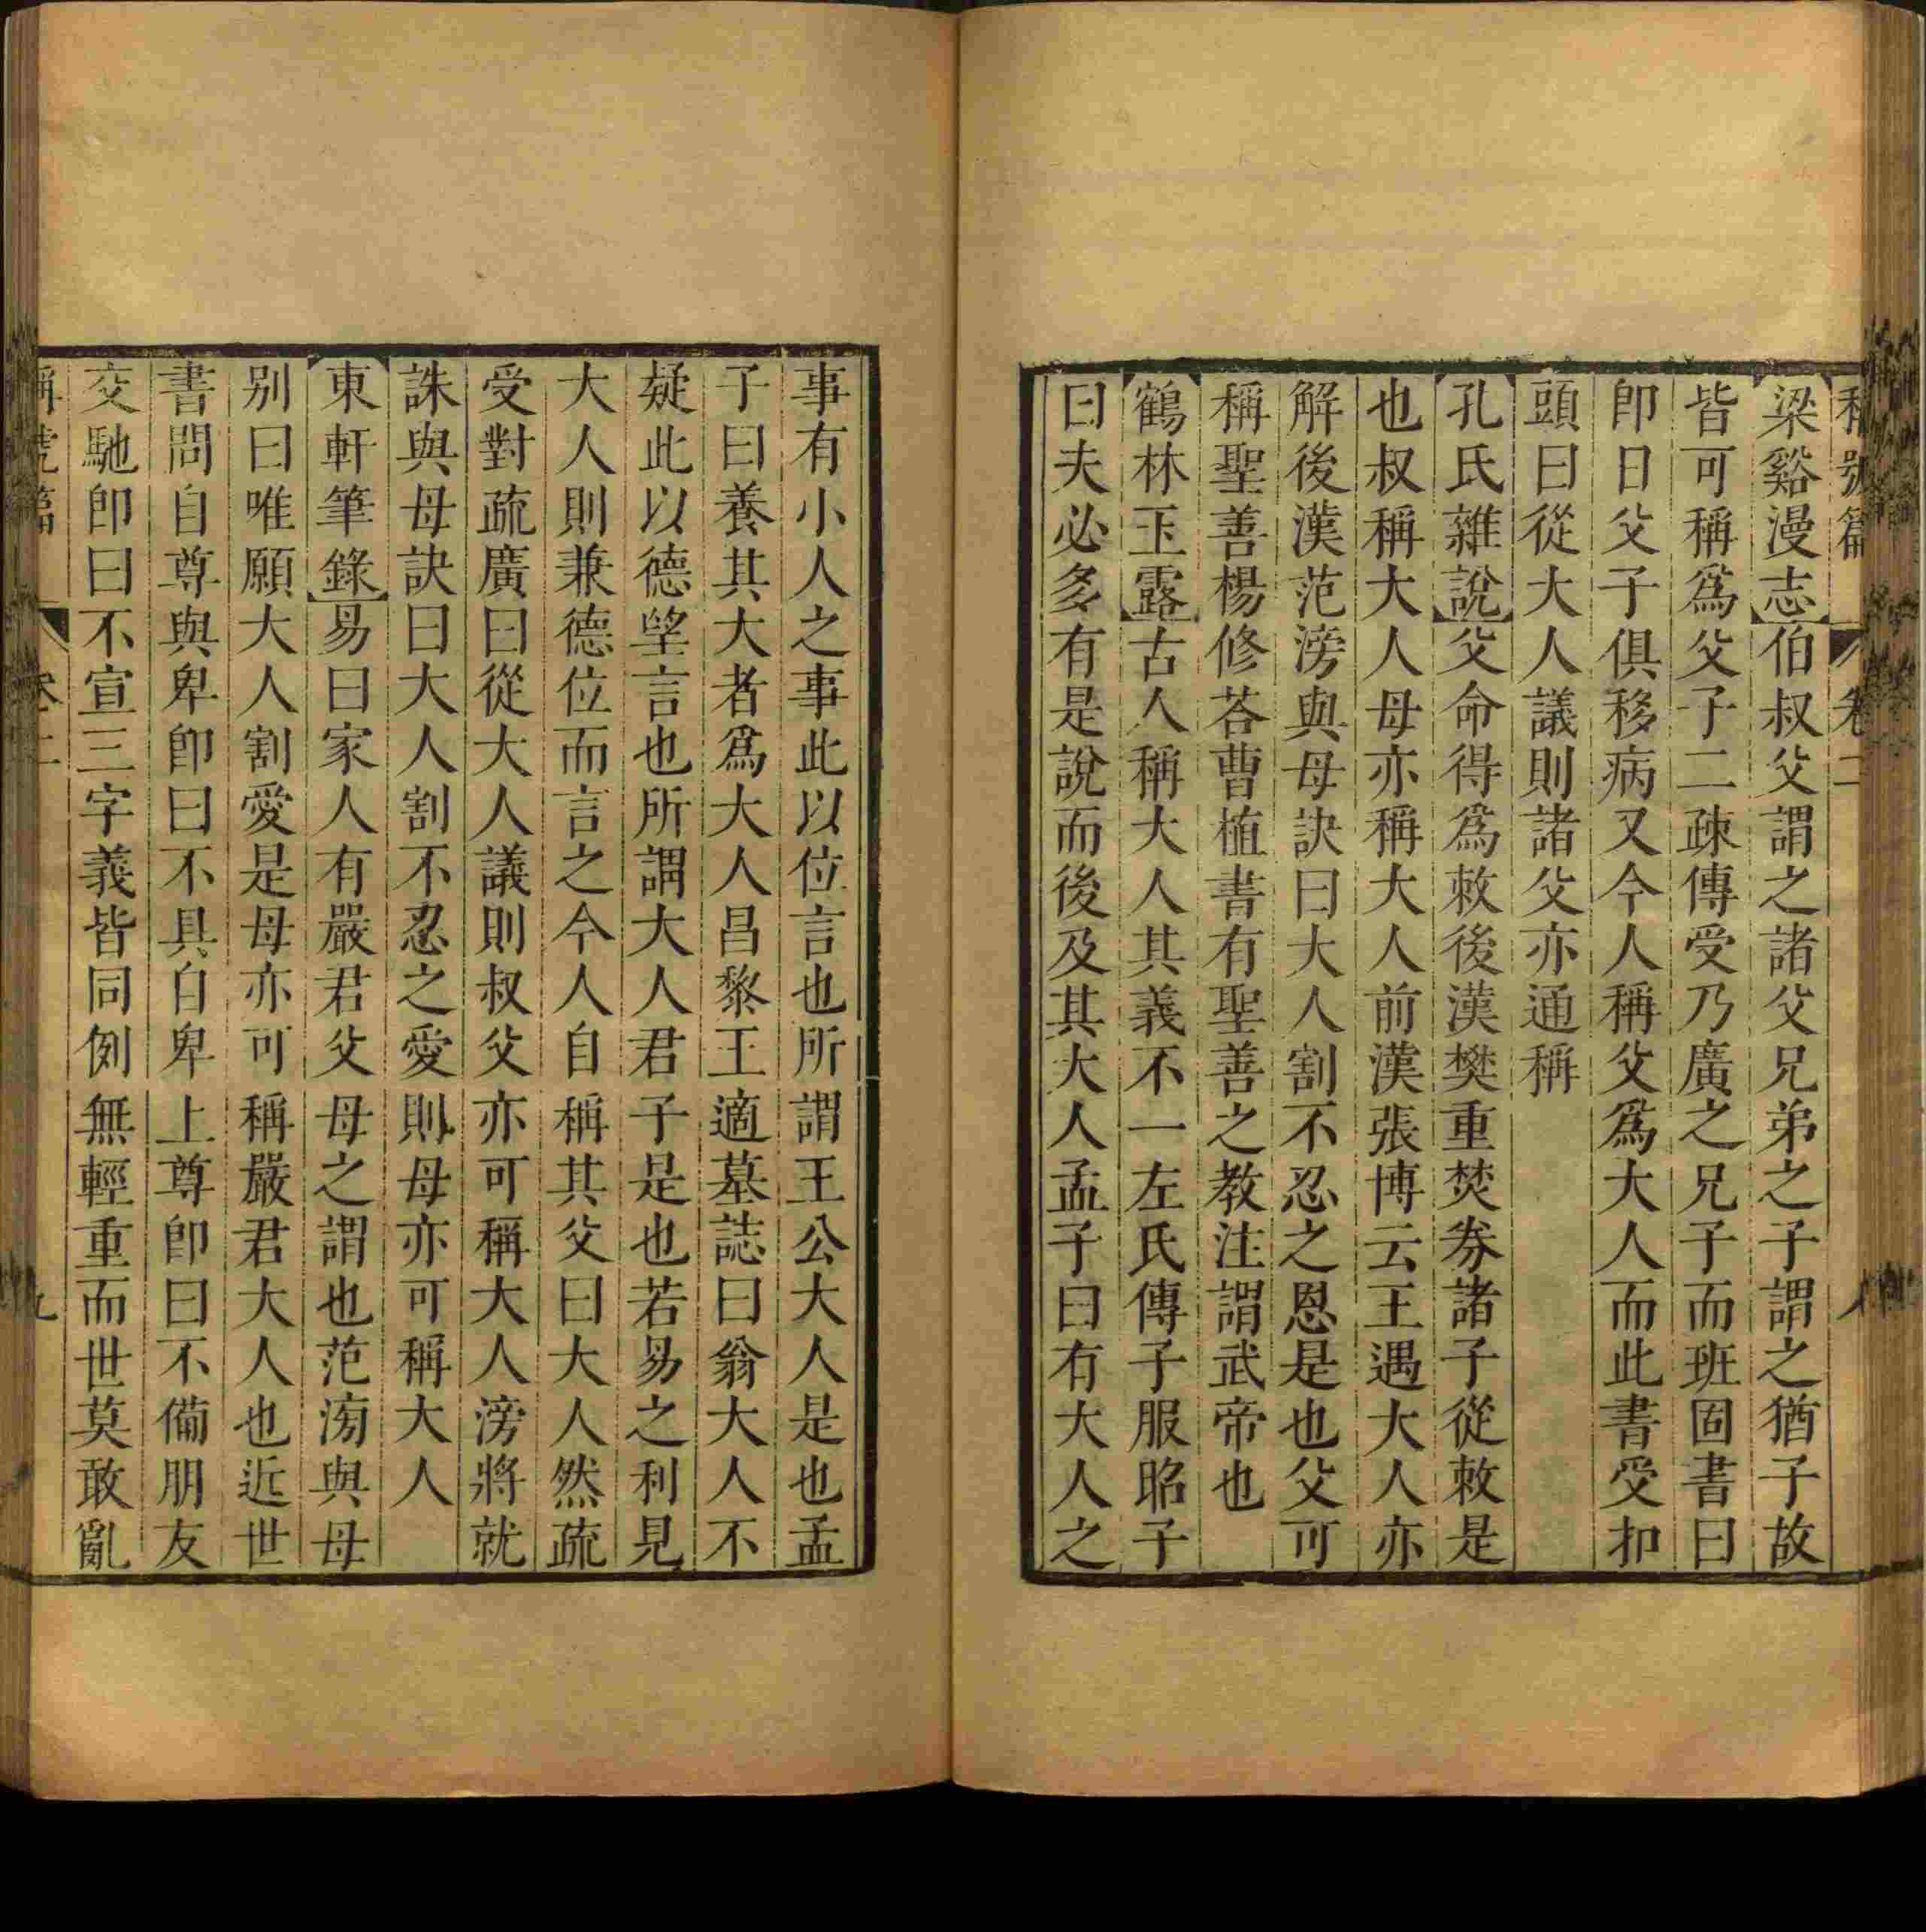 稱號篇 卷二 八
梁谿漫志伯叔父謂之諸父兄弟之子謂之猶子故
皆可稱爲父子二疎傳受乃廣之兄子而班固書曰
卽日父子俱移病又今人稱父爲大人而此書受扣
頭曰從大人議則諸父亦通稱
孔氏雜說父命得爲敕後漢樊重焚券諸子從敕是
也叔稱大人母亦稱大人前漢張博云王遇大人亦
解後漢范滂與母訣曰大人割不忍之恩是也父可
稱聖善楊修荅曹植書有聖善之教注謂武帝也
鶴林玉露古人稱大人其義不一左氏傳子服昭子
曰夫必多有是說而後及其大人孟子曰有大人之
事有小人之事此以位言也所謂王公大人是也孟
子曰養其大者爲大人昌黎王適墓誌曰翁大人不
疑此以德朢言也所謂大人君子是也若易之利見
大人則兼德位而言之今人自稱其父曰大人然疏
受對疏廣曰從大人議則叔父亦可稱大人滂將就
誅與母訣曰大人割不忍之愛則母亦可稱大人
東軒筆錄易曰家人有嚴君父母之謂也范滂與母
别曰唯願大人割愛是母亦可稱嚴君大人也近世
書問自尊與卑卽曰不具自卑上尊卽曰不備朋友
交馳卽曰不宣三字義皆同例無輕重而世莫敢亂
稱號篇 卷二 九